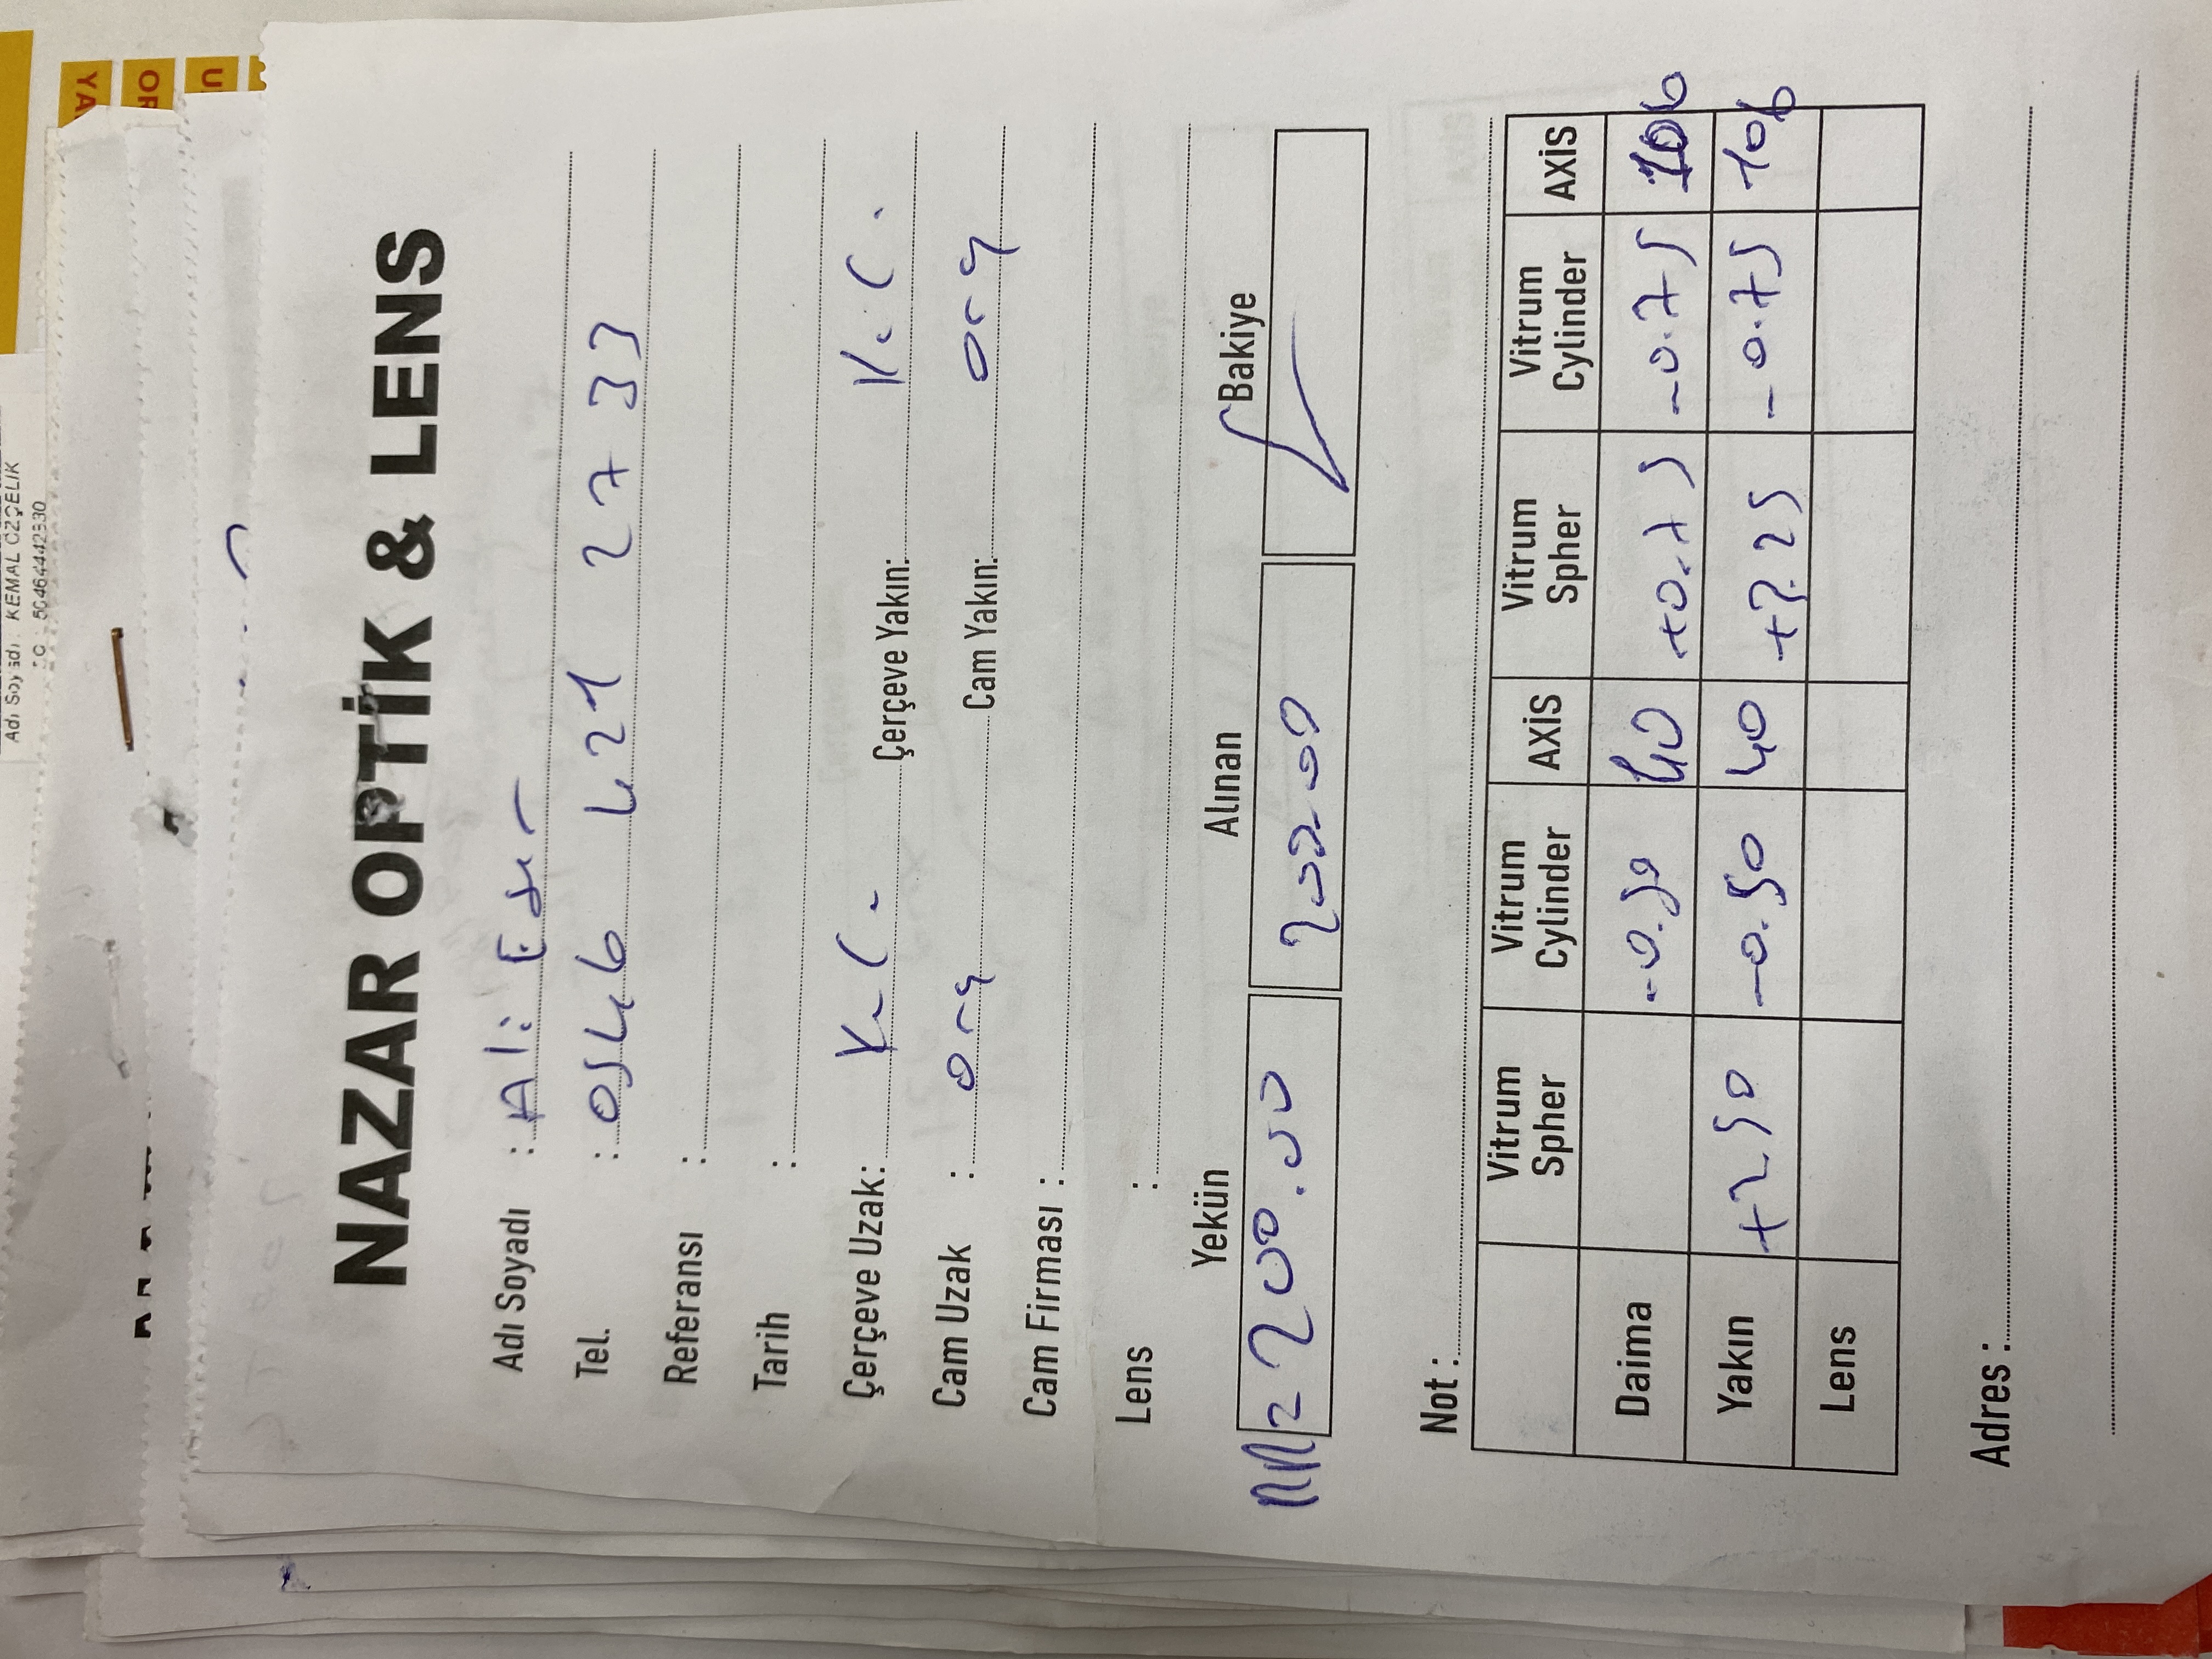 Adı Soyadı : KEMAL ÖZÇELİK
50464442930
YA
OR
U
NAZAR OPTİK & LENS
Adı Soyadı : Ali
Tel. : 0546 421 2733
Referansı :
Tarih :
Çerçeve Uzak: K.C. Çerçeve Yakın: K.C.
Cam Uzak : org Cam Yakın: org
Cam Firması :
Lens :
Yekün Alınan Bakiye
= 200.00 200.00
Not :
Vitrum Spher Vitrum Cylinder AXİS Vitrum Spher Vitrum Cylinder AXİS
Daima -0.50 40 +0.75 -0.75 106
Yakın +2.50 -0.50 40 +3.25 -0.75 106
Lens
Adres :